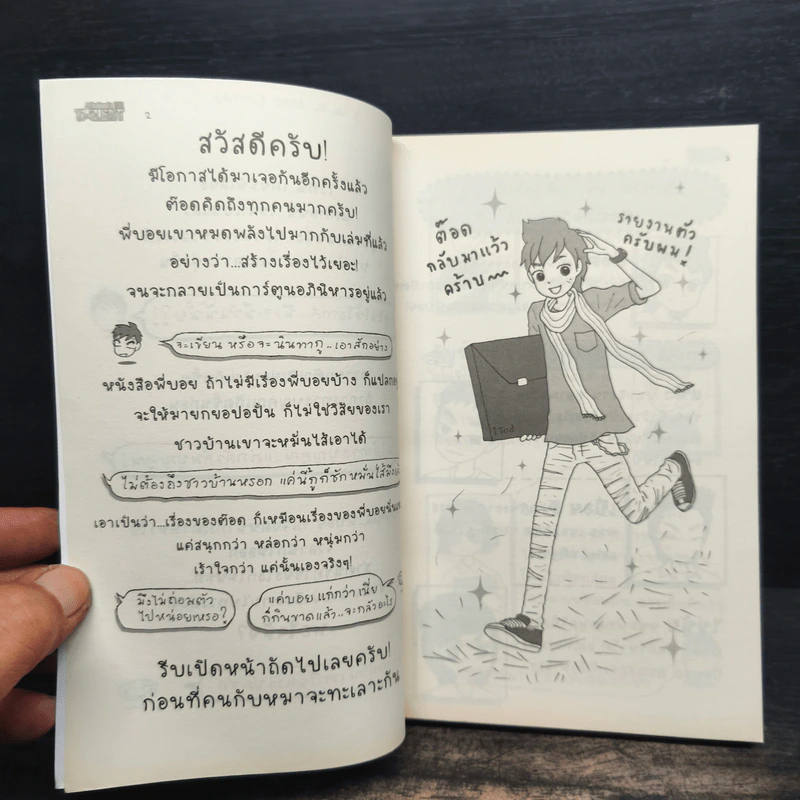 2
สวัสดีครับ!
มีโอกาสได้มาเจอกันอีกครั้งแล้ว
ต๊อดคิดถึงทุกคนมากครับ!
พี่บอยเขาหมดพลังไปมากกับเล่มที่แล้ว
อย่างว่า...สร้างเรื่องไว้เยอะ!
จนจะกลายเป็นการ์ตูนอภินิหารอยู่แล้ว
จะเขียน หรือจะนินทากู..เอาสักอย่าง
หนังสือพี่บอย ถ้าไม่มีเรื่องพี่บอยบ้าง ก็แปลก
จะให้มายกยอปอปั้น ก็ไม่ใช่วิสัยของเรา
ชาวบ้านเขาจะหมั่นไส้เอาได้
ไม่ต้องถึงชาวบ้านหรอก แค่นี้กูก็ชักหมั่นไส้มึง
เอาเป็นว่า...เรื่องของต๊อด ก็เหมือนเรื่องของพี่บอย
แค่สนุกกว่า หล่อกว่า หนุ่มกว่า
เร้าใจกว่า แค่นั้นเองจริงๆ!
มึงไม่ถ่อมตัว
ไปหน่อยเหรอ?
แค่บอย แก่กว่า เนี่ย
ก็กินขาดแล้ว..จะกลัวอะไร
รีบเปิดหน้าถัดไปเลยครับ!
ก่อนที่คนกับหมาจะทะเลาะกัน
3
ต๊อด
กลับมาแว้ว
คร้าบ~~
รายงานตัว
ครับผม!